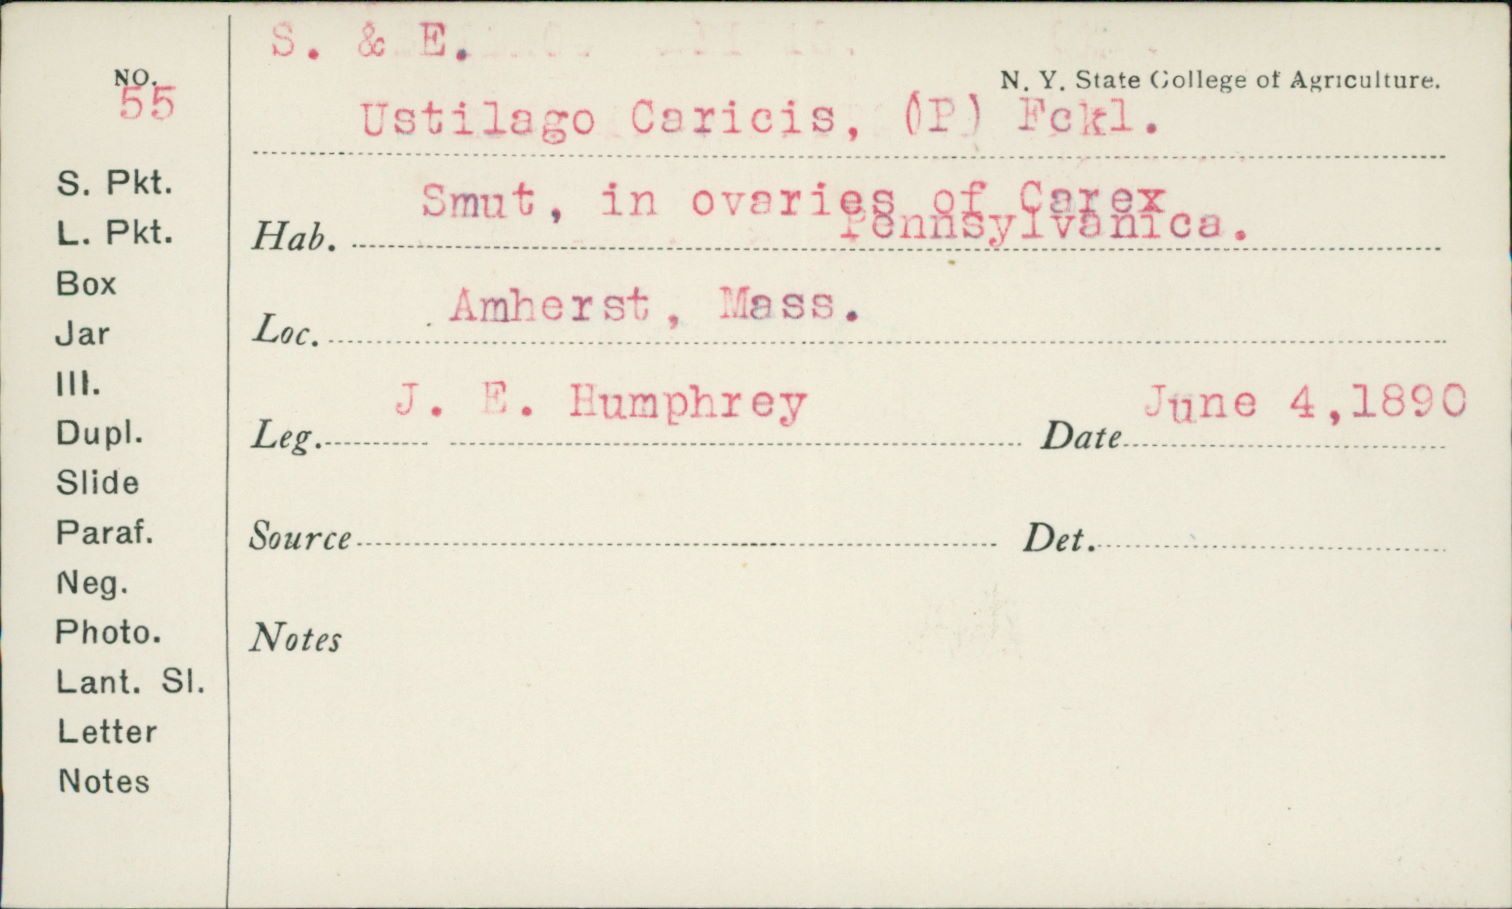 S. & E.
NO.
N. Y. State College of Agriculture.
55
Ustilago Caricis, (P) Fckl.
S. Pkt.
Smut, in ovaries of Carex
Pennsylvanica.
L. Pkt.
Hab.
Box
Amherst, Mass.
Jar
Loc.
Ill.
J. E. Humphrey
June 4,1890
Dupl.
Leg.
Date
Slide
Paraf.
Source
Det.
Neg.
Photo.
Notes
Lant. Sl.
Letter
Notes